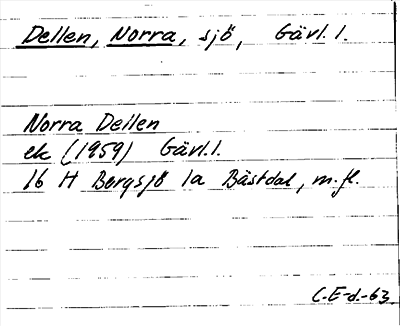 Dellen, Norra, sjö, Gävl. l.
Norra Dellen
ek (1959) Gävl. l.
16 H Bergsjö 1a Bästdal, m.fl.
C.E-d.-63